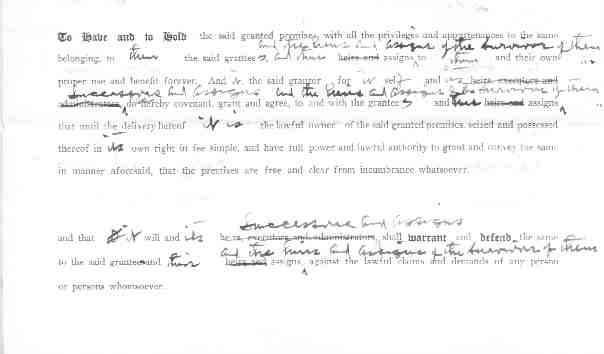 To Have and to Hold the said granted premises, with all the privileges and appurtenances to the same
and heirs and assigns of the survivor of them
belonging, to them the said grantees, and their heirs and assigns to them and their own
proper use and benefit forever. And it the said grantor for it self and its heirs, executors and
successors and assigns and the heirs and assigns of the survivor of them
administrators, do hereby covenant, grant and agree, to and with the grantees and their heirs and assigns
that until the delivery hereof it is the lawful owner of the said granted premises, seized and possessed
thereof in its own right in fee simple, and have full power and lawful authority to grant and convey the same
in manner aforesaid, that the premises are free and clear from incumbrance whatsoever.
successors and assigns
and that it will and its heirs, executors and administrators, shall warrant and defend the same
and the heirs and assigns of the survivor of them
to the said grantees and their heirs and assigns, against the lawful claims and demands of any person
or persons whomsoever.